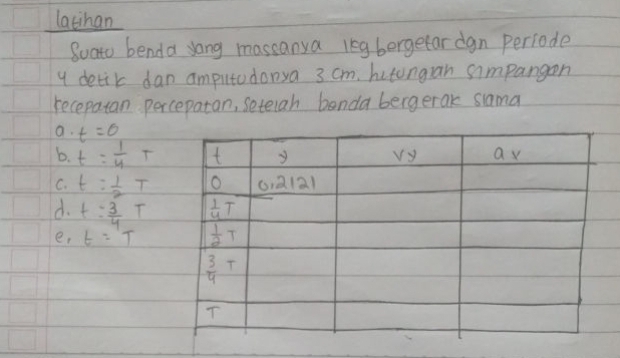 latihan
Suatu benda yang massanya 1kg bergetar dgn Periode
4 detik dan amplitudonya 3 cm. hitunglah simpangan
kecepatan percepatan, setelah benda bergerak slama
a. t = 0
b. t = 1/4 T
c. t = 1/2 T
d. t = 3/4 T
e. t = T
t y vy av
0 0,2121
1/4 T
1/2 T
3/4 T
T